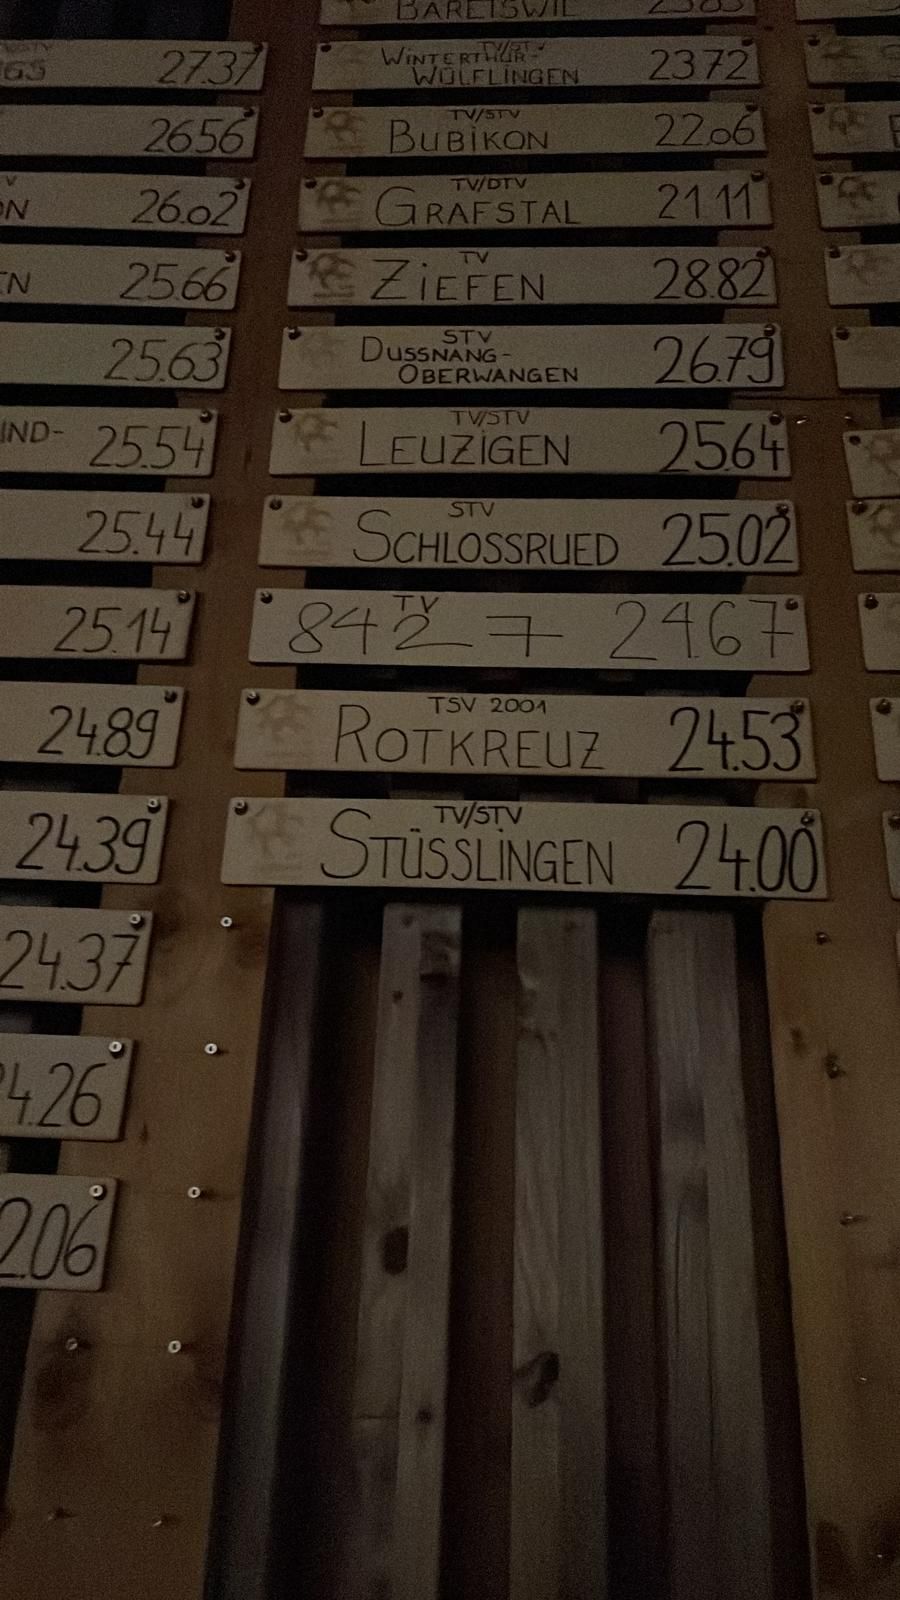 GS 27.37
26.56
ON 26.02
EN 25.66
25.63
IND- 25.54
25.44
25.14
24.89
24.39
24.37
4.26
2.06
BÄRETSWIL
TV/STV
WINTERTHUR-
WÜLFLINGEN 23.72
TV/STV
BUBIKON 22.06
TV/DTV
GRAFSTAL 21.11
TV
ZIEFEN 28.82
STV
DUSSNANG-
OBERWANGEN 26.79
TV/STV
LEUZIGEN 25.64
STV
SCHLOSSRUED 25.02
TV
8427 24.67
TSV 2001
ROTKREUZ 24.53
TV/STV
STÜSSLINGEN 24.00